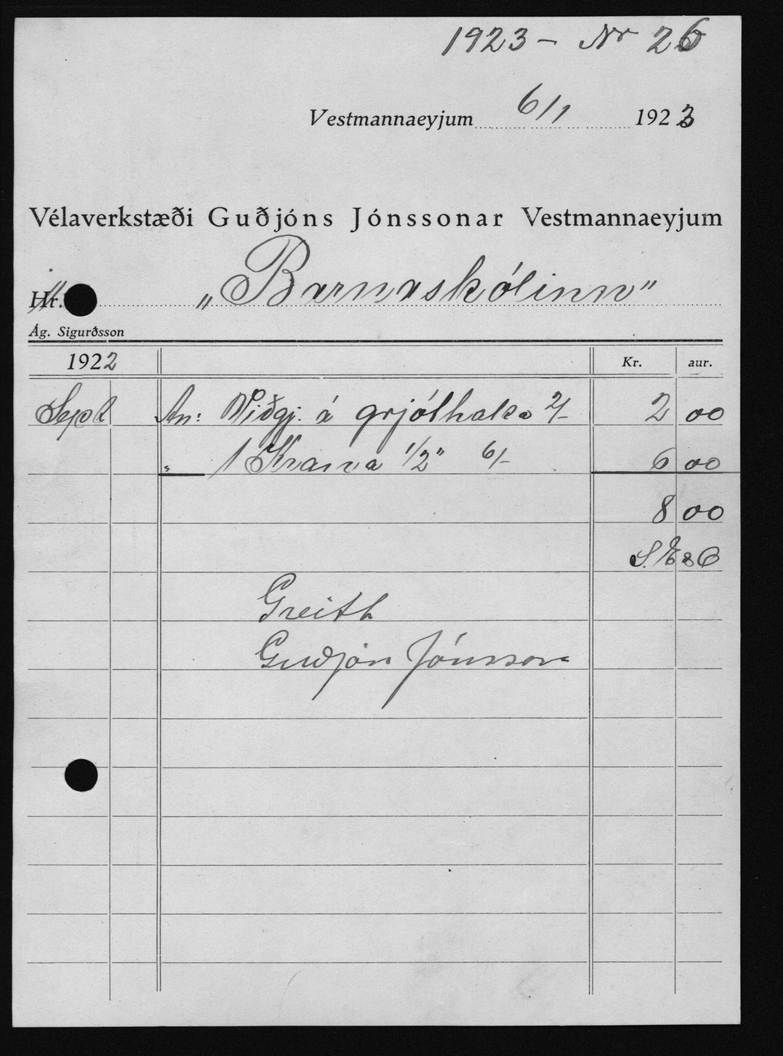 1923 - Nr 26
Vestmannaeyjum 6/1 1923
Vélaverkstæði Guðjóns Jónssonar Vestmannaeyjum
Hr. „Barnaskólinn"
Ág. Sigurðsson
1922 Kr. aur.
Sept An: Viðgj. á grjólhaka 2/- 2 00
" 1 Krana 1/2" 6/- 6 00
8 00
S. E & O
Greith
Guðjón Jónsson